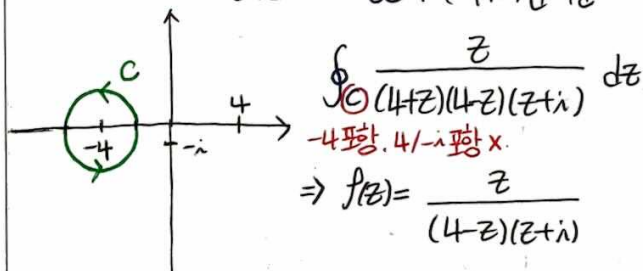 C
-4
-i
4
∮_C z / (4+z)(4-z)(z+i) dz
-4 포함, 4/-i 포함 X.
⇒ f(z) = z / (4-z)(z+i)